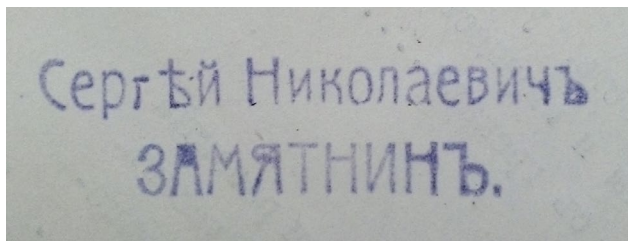 Сергѣй Николаевичъ
ЗАМЯТНИНЪ.